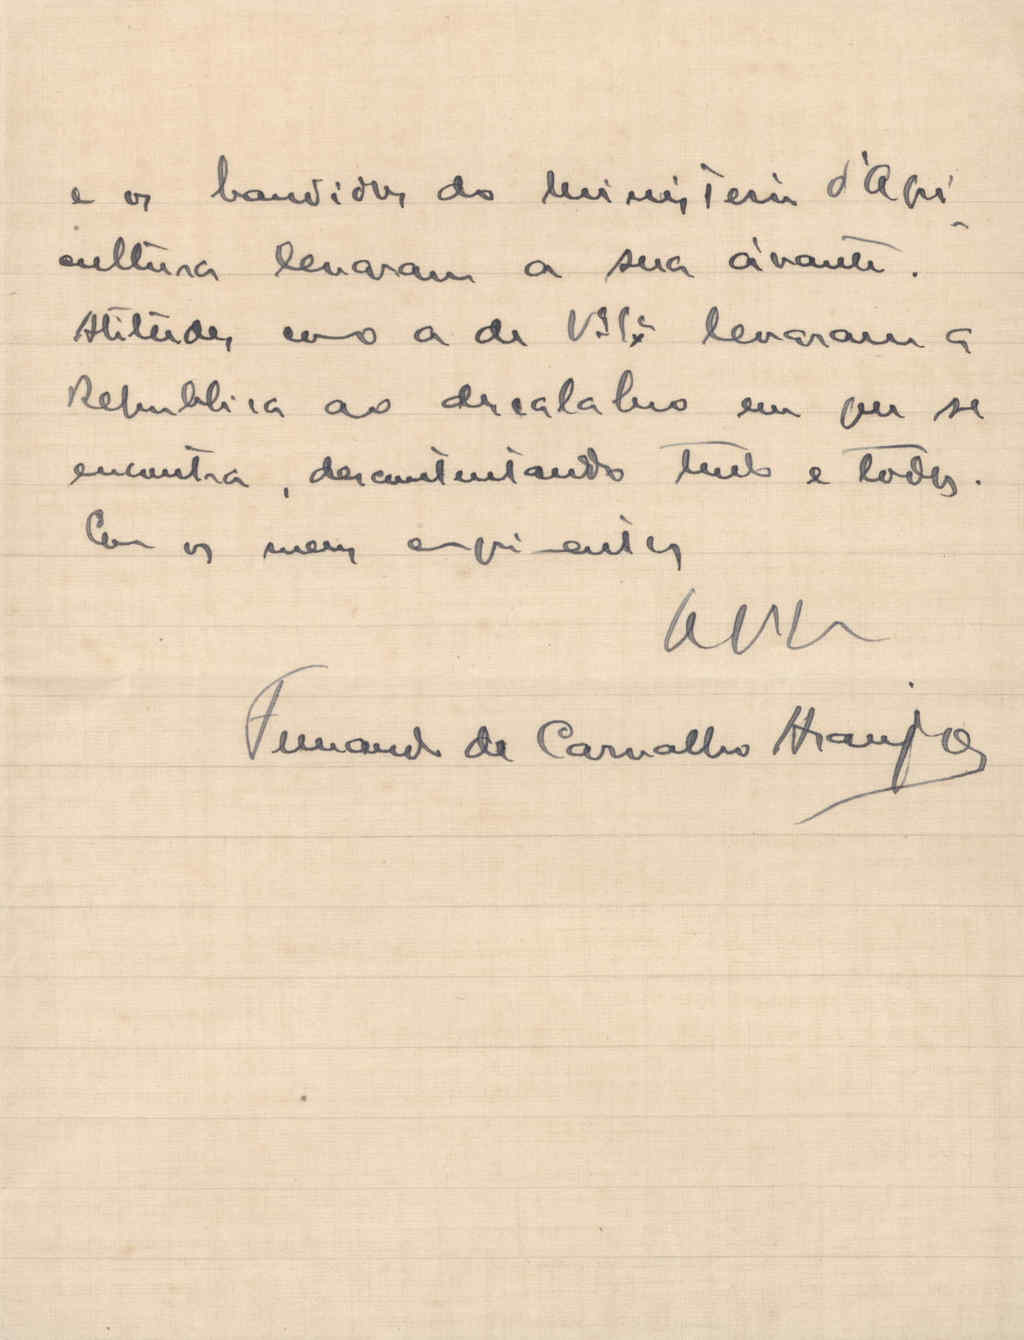 e os bandidos do Ministerio d'Agri-
cultura levaram a sua ávante.
Atitudes como a de V. Exª levaram a
Republica ao descalabro em que se
encontra, descontentando tudo e todos.
Com os meus cumprimentos
Fernando de Carvalho Araujo